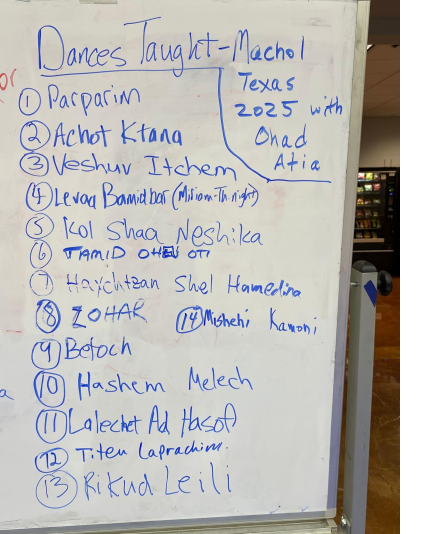 Dances Taught - Machol
Texas
2025 with
Ohad
Atia
① Parparim
② Achot Ktana
③ Veshuv Itchem
④ Levad Bamidbar (Miliam-Th-night)
⑤ Kol Shaa Neshika
⑥ TAMID OHEV OTI
⑦ Haychtzan Shel Hamedina
⑧ ZOHAR ⑭ Mishehi Kamoni
⑨ Betoch
⑩ Hashem Melech
⑪ Lalechet Ad Hasof
⑫ Titen Laprachim.
⑬ Rikud Leili
or
a